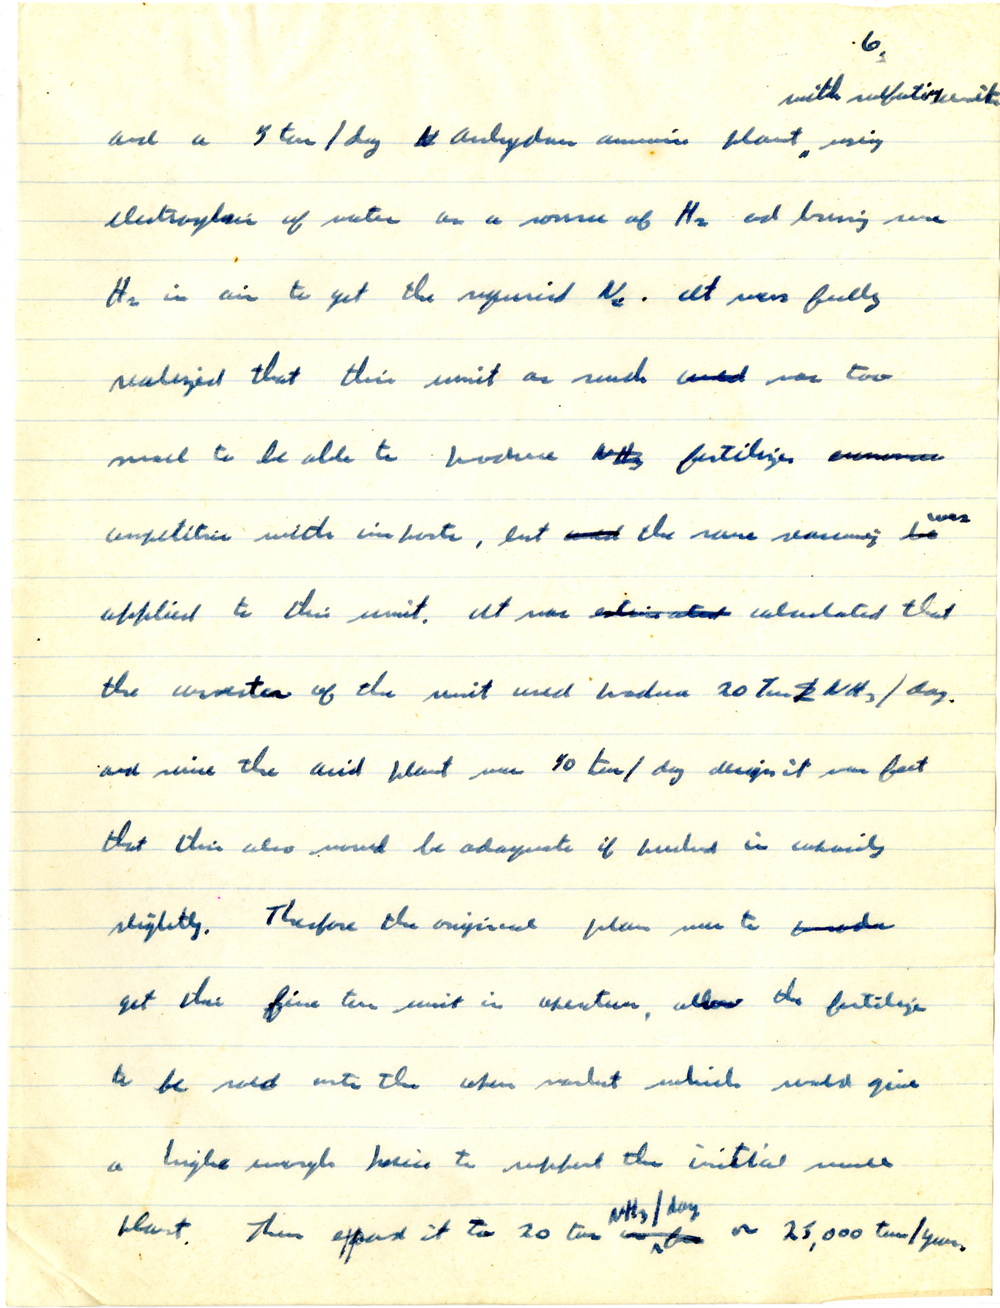 6.
with sulfation unit
and a 5 ton/day N Anhydrous ammonia plant, using
electroylsis of water as a source of H2 and burning some
H2 in air to get the required N2. It was fully
realized that this unit as such was too
small to be able to produce NH3 fertilizer
competitive with imports, but and the same reasoning be was
applied to this unit. It was estimated calculated that
the converter of the unit could produce 20 Tons NH3/day.
and since the acid plant was 50 ton/day design it was felt
that this also would be adequate if pushed in capacity
slightly. Therefore the original plan was to
get the five ton unit in operation, allow the fertilizer
to be sold onto the open market which would give
a high enough price to support the initial small
plant. Then expand it to 20 ton NH3/day or 25,000 tons/year.